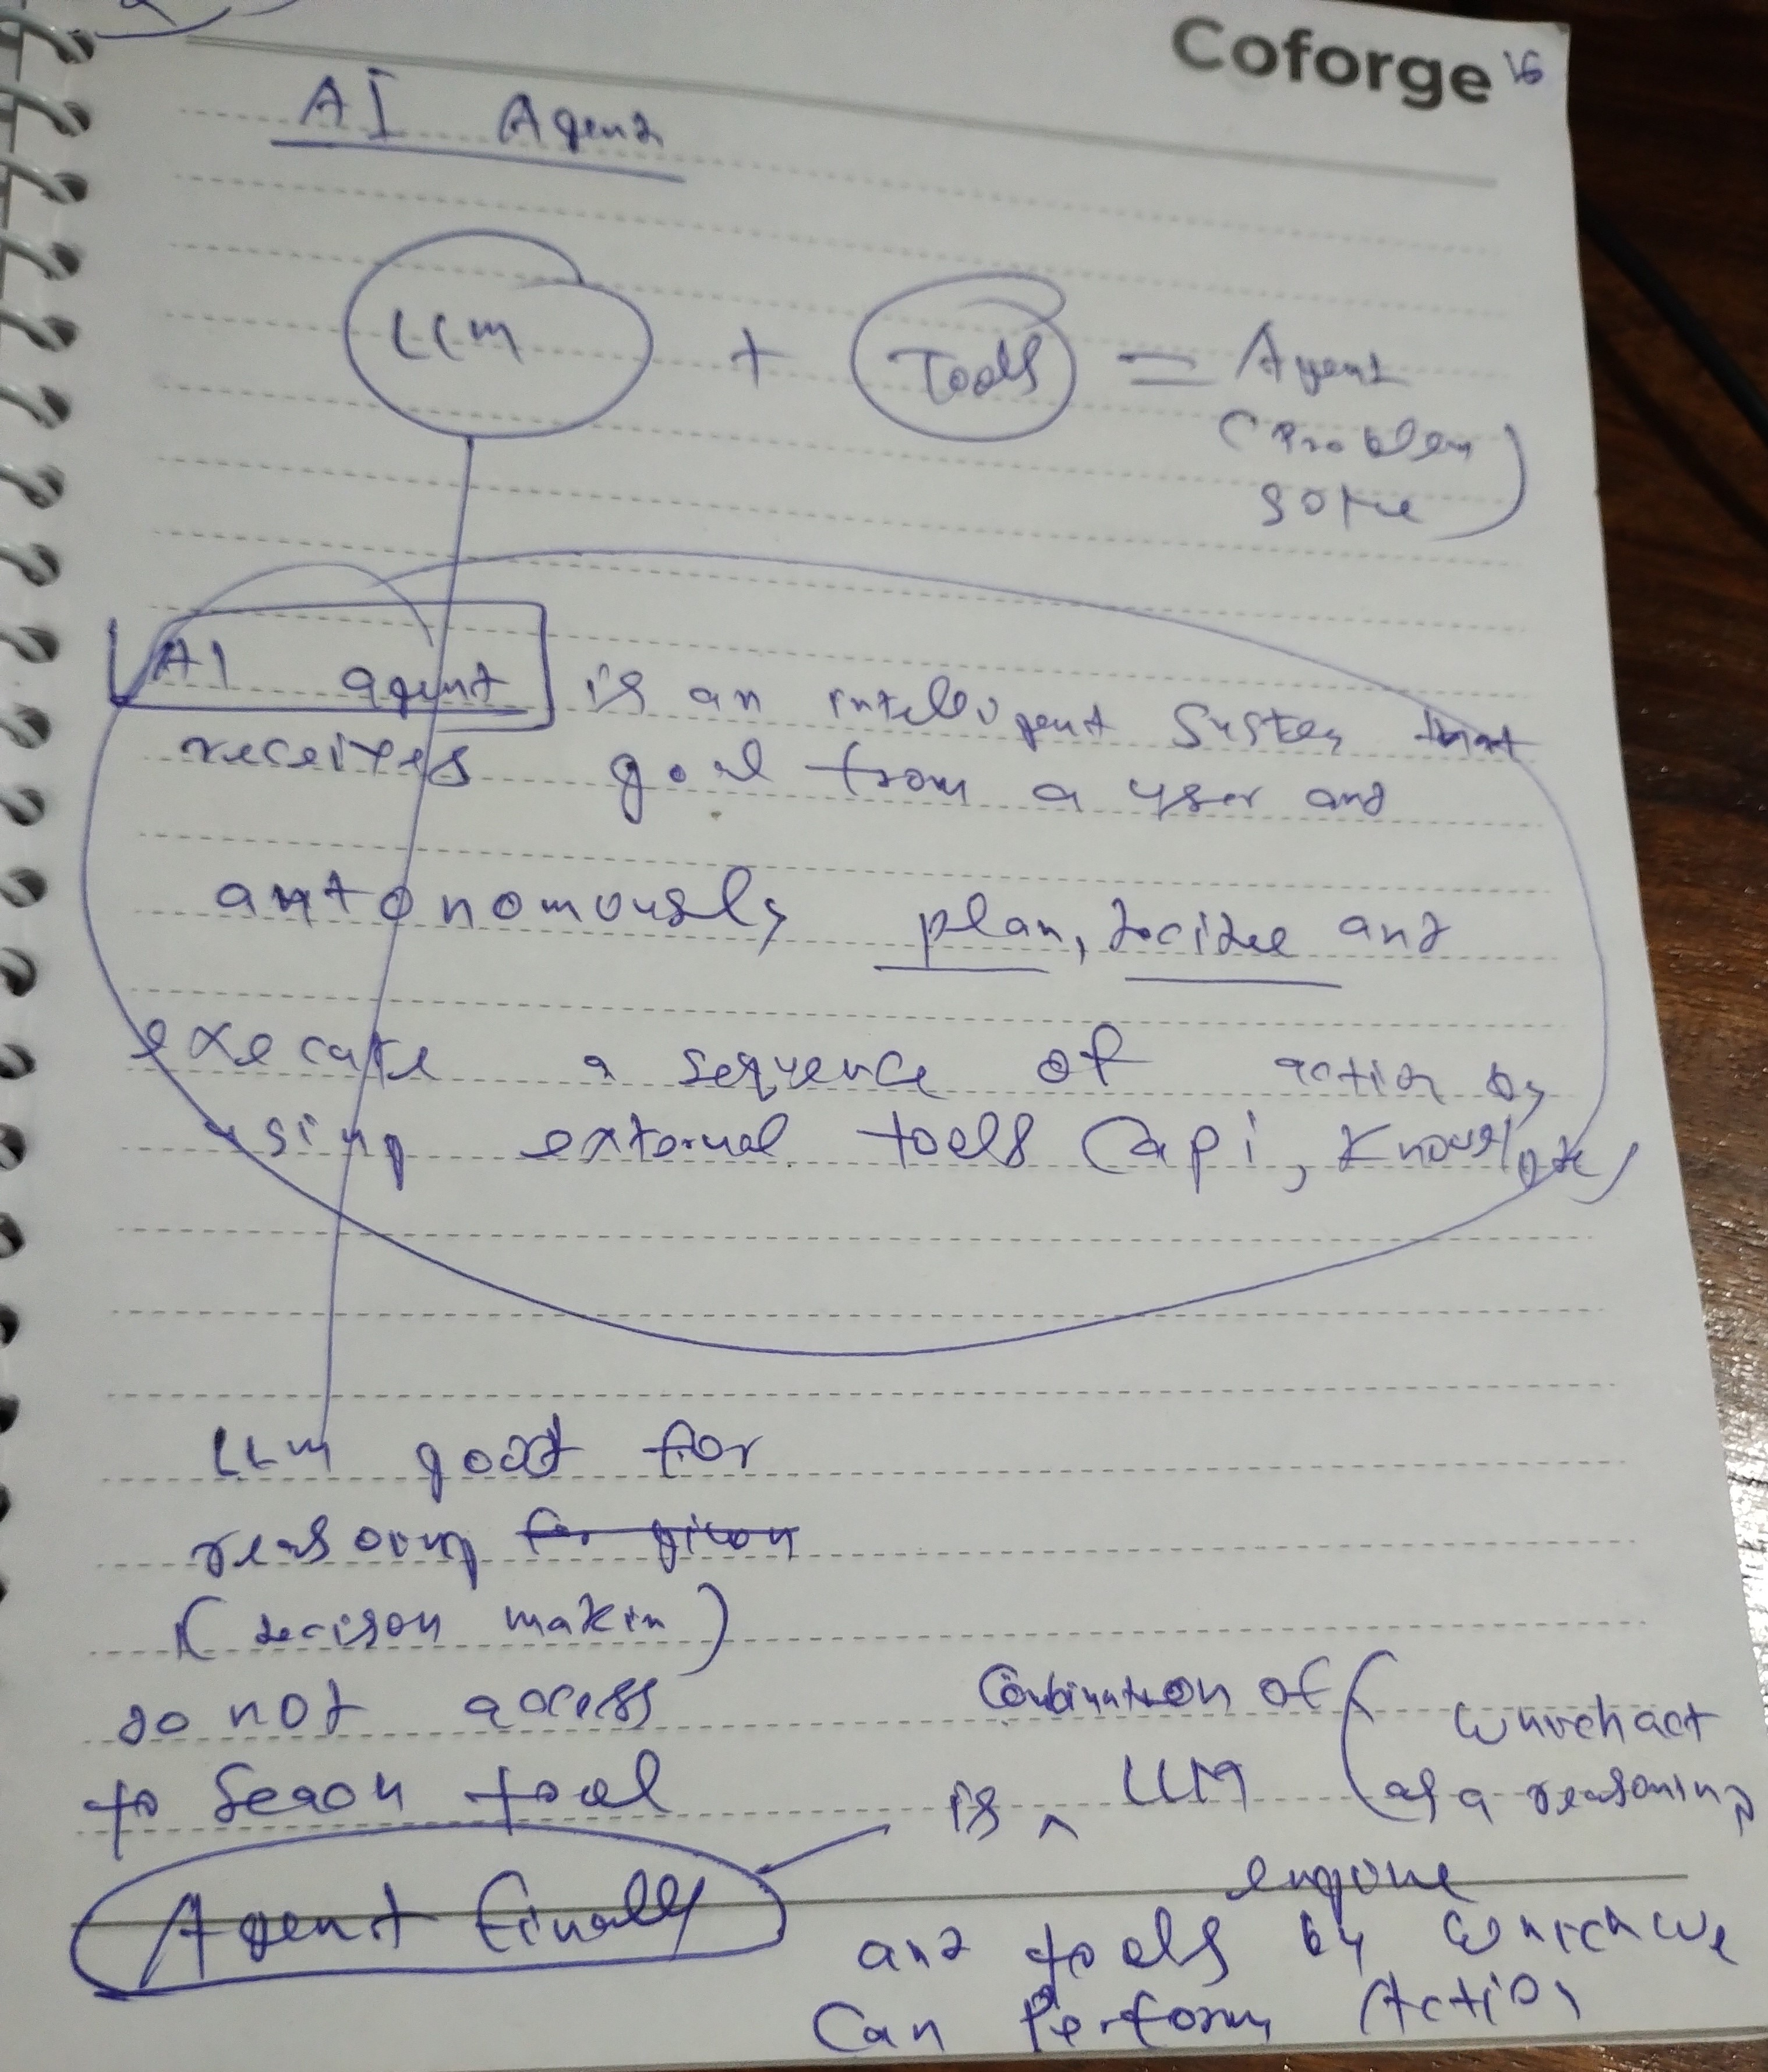 Coforge 16
AI Agent
LLM + Tools = Agent
(Problem
solve)
AI agent is an intelligent System that
receives goal from a user and
autonomously plan, decide and
execute a sequence of action by
using external tools (api, Knowledge)
LLM good for
reasoning for given
(decison makin)
do not access
to tool
Agent finally is Combination of LLM (which act
as a reasoning
engine
and tools by which we
Can Perform Action